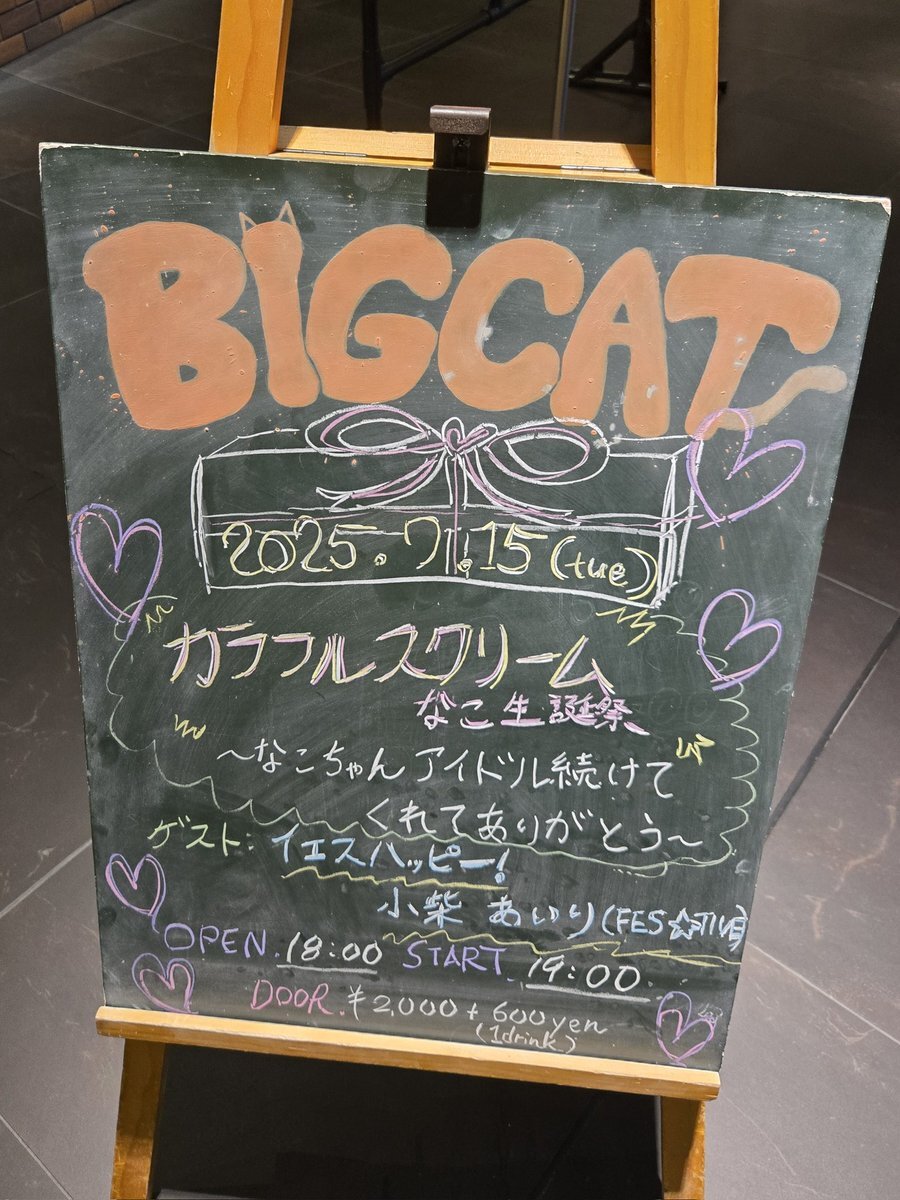 BIGCAT
2025.7.15(tue)
カラフルスクリーム
なこ生誕祭
〜なこちゃんアイドル続けて
くれてありがとう〜
ゲスト:イエスハッピー!
小柴 あいり(FES☆TIVE)
OPEN.18:00 START.19:00
DOOR.¥2,000+600yen
(1drink)